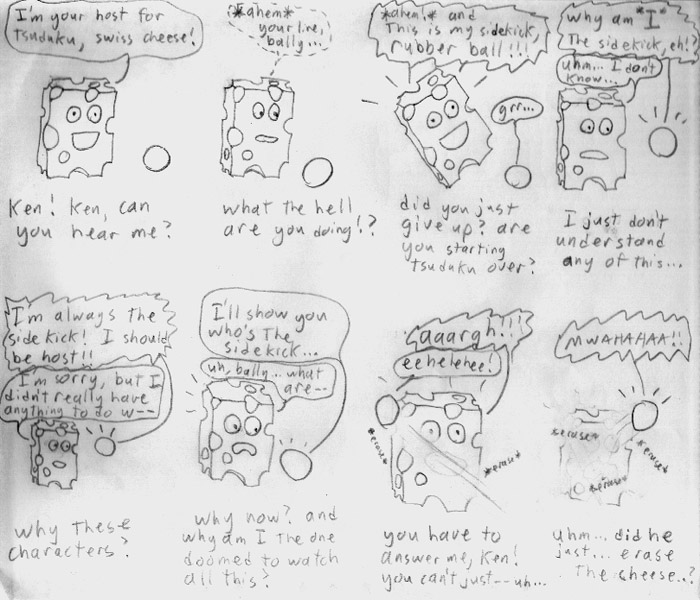 I'm your host for
Tsuduku, swiss cheese!
Ken! Ken, can
you hear me?
*ahem*
your line,
bally...
what the hell
are you doing!?
*ahem!* and
This is my sidekick,
rubber ball!!!
grr...
did you just
give up? are
you starting
Tsuduku over?
why am *I*
The sidekick, eh!?
uhm... I don't
know...
I just don't
understand
any of this...
I'm always the
sidekick! I should
be host!!
I'm sorry, but I
didn't really have
anything to do w--
why these
characters?
I'll show you
who's The
sidekick...
uh, bally... what
are--
why now? and
why am I the one
doomed to watch
all this?
aaargh!!!
eehelehee!
*erase*
*erase*
you have to
answer me, Ken!
you can't just--uh...
MWAHAHAA!!
*erase*
*erase*
*erase*
uhm... did he
just... erase
The cheese..?